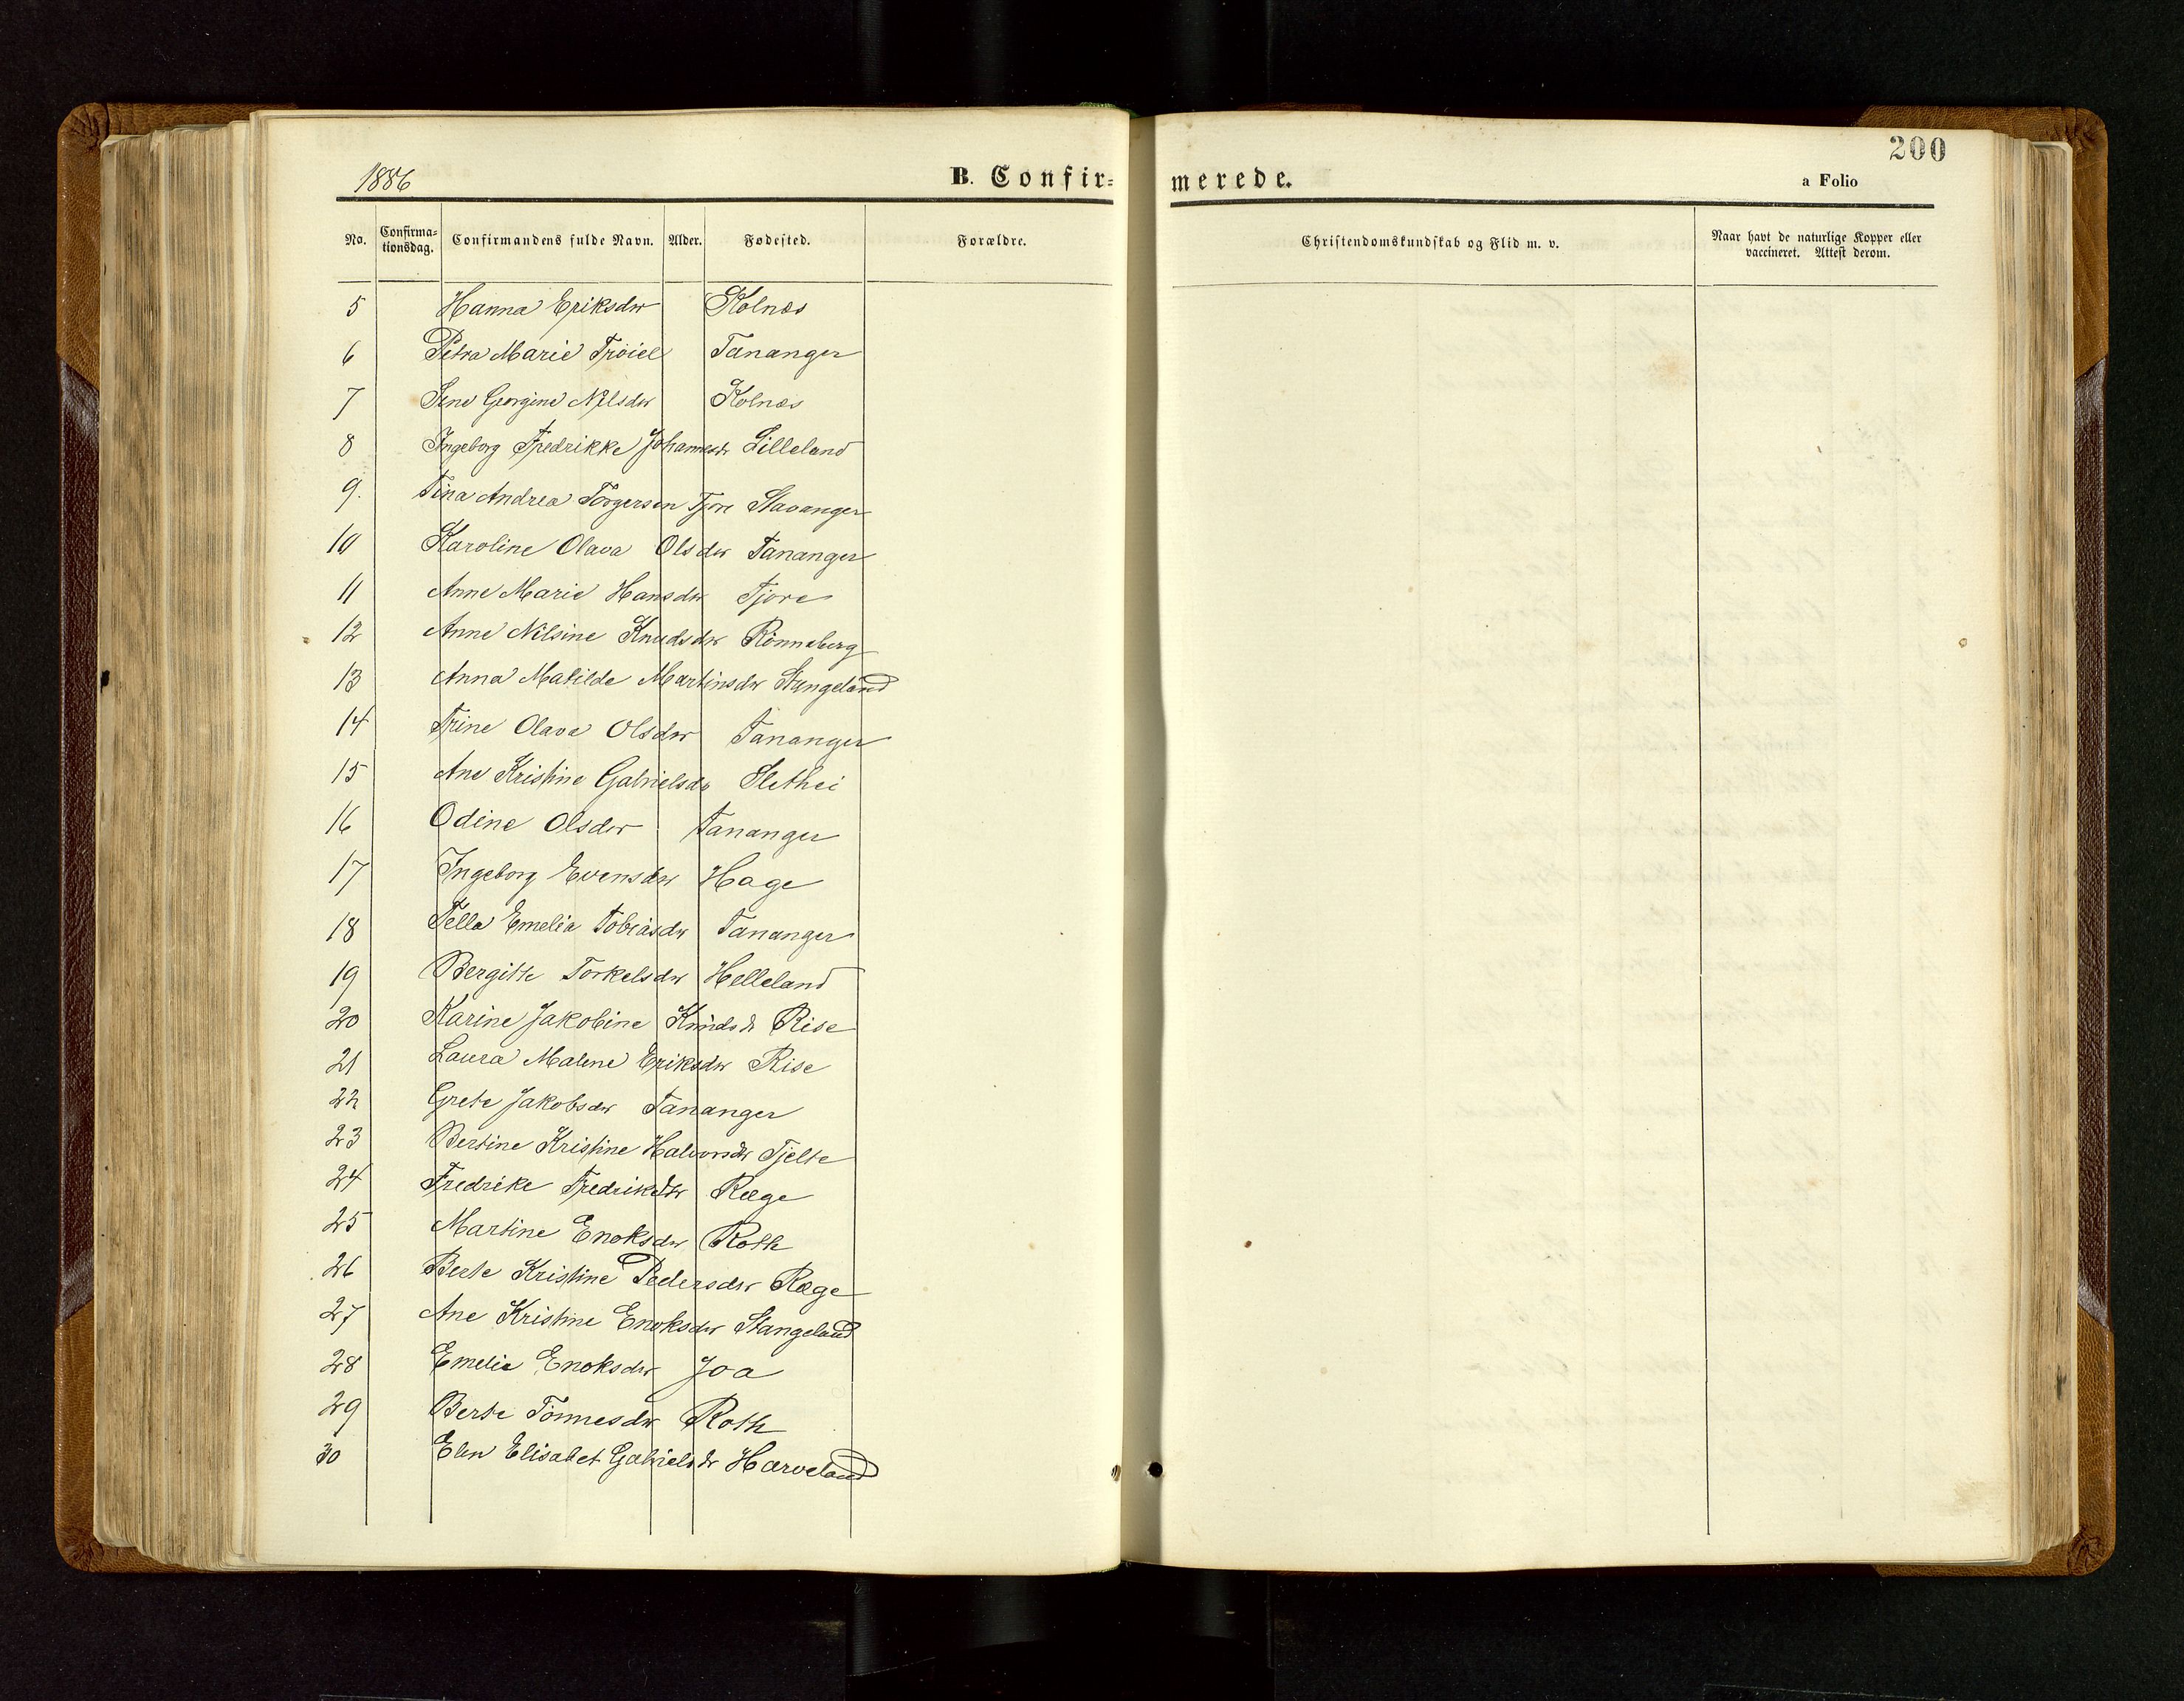 200
1886
B. Confir=
merede.
a Folio
No.
Confirma=
tionsdag.
Confirmandens fulde Navn.
Alder.
Fødested.
Forældre.
Christendomskundskab og Flid m. v.
Naar havt de naturlige Kopper eller
vaccineret. Attest derom.
5 Hanna Eriksdtr Kolnæs
6 Petra Marie Tröiel Tananger
7 Georgine Nilsdtr Kolnæs
8 Ingeborg Fredrikke Johannesdr Lilleland
9. Tina Andrea Torgersen Tjore Stavanger
10 Karoline Olava Olsdtr Tananger
11 Anne Marie Hansdtr Tjore
12 Anne Nilsine Knudsdtr Rönneberg
13 Anna Matilde Martinsdtr Stangeland
14 Trine Olava Olsdtr Tananger
15 Ane Kristine Gabrielsdtr Slethei
16 Odine Olsdtr Tananger
17 Ingeborg Evensdtr Hage
18 Tella Emelia Tobiasdtr Tananger
19 Bergitte Torkelsdtr Helleland
20 Karine Jakobine Knudsdr Rise
21 Laura Malene Eriksdtr Rise
22 Grete Jakobsdtr Tananger
23 Bertine Kristine Halvorsdtr Tjelte
24 Fredrike Fredriksdtr Ræge
25 Martine Enoksdtr Roth
26 Berte Kristine Pedersdtr Ræge
27 Ane Kristine Enoksdtr Stangeland
28 Emelie Enoksdtr Joa
29 Berte Tönnesdtr Roth
30 Elen Elisabet Gabrielsdr Harveland